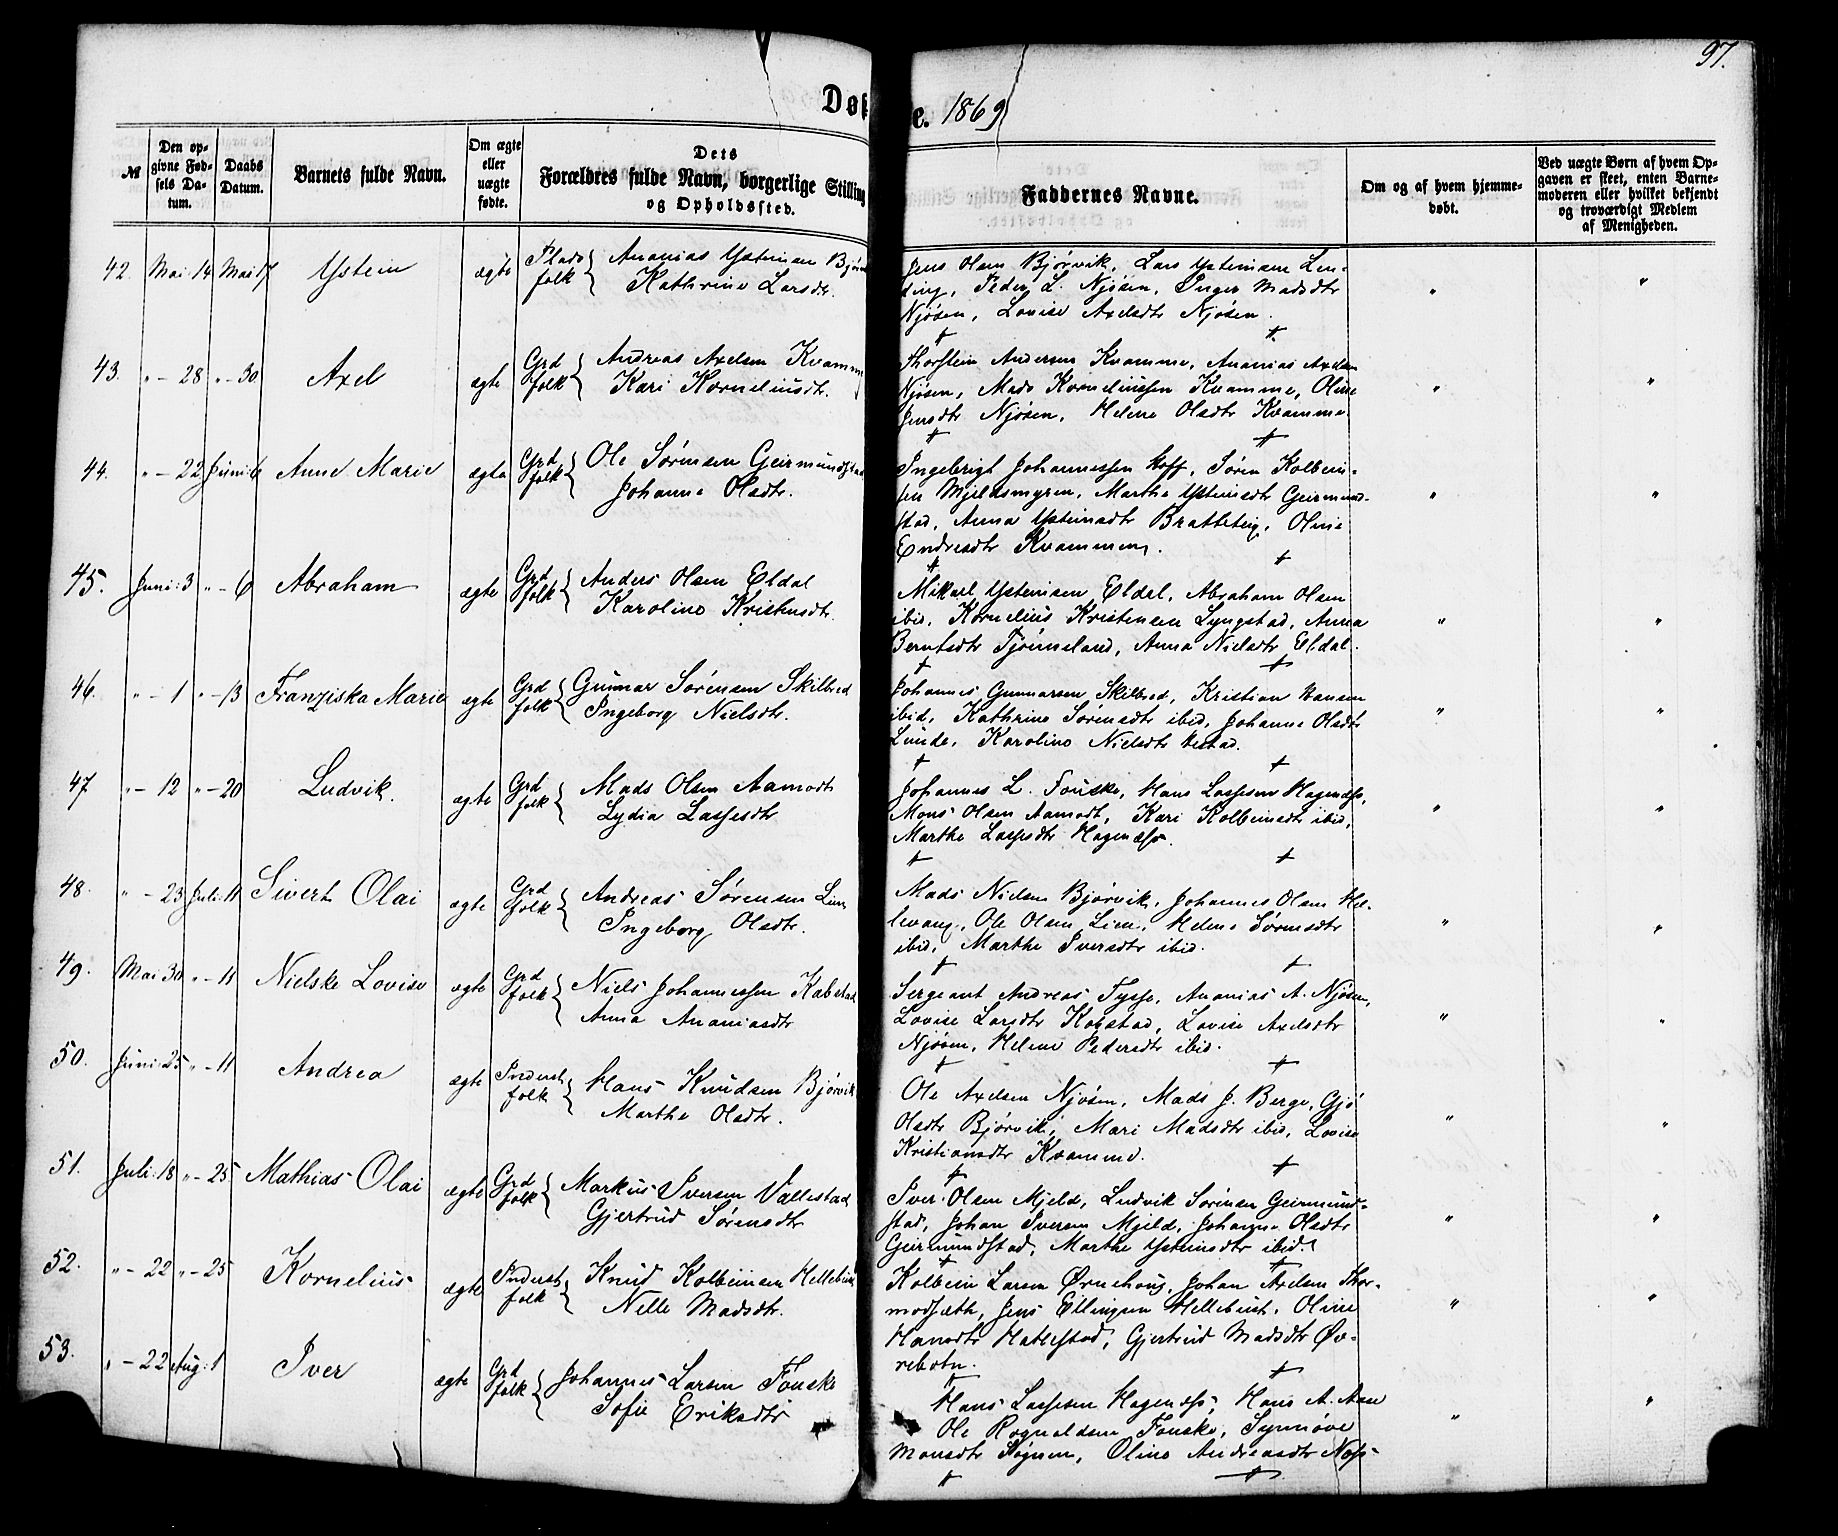 97.
Døb e. 1869
№
Den op-
givne Fød-
sels Da-
tum.
Daabs
Datum.
Barnets fulde Navn.
Om ægte
eller
uægte
fødte.
Dets
Forældres fulde Navn, borgerlige Stilling
og Opholdssted.
Faddernes Navne.
Om og af hvem hjemme-
døbt.
Ved uægte Børn af hvem Op-
gaven er skeet, enten Barne-
moderen eller hvilket bekjendt
og troværdigt Medlem
af Menigheden.
42. Mai 14 Mai 17 Ystein ægte Plads folk { Ananias Ysteinsen Bjør
Kathrine Larsdtr.
Jens Olsen Bjørvik, Lars Ysteinsen Len-
ding, Peder L. Njøsen, Inger Madsdtr
Njøsen, Lovise Axelsdtr Njøsen.
43. " - 28 " - 30 Axel ægte Grd folk { Andreas Axelsen Kvamme
Kari Korneliusdtr.
Thorstein Andersen Kvamme, Ananias Axelsen
Njøsen, Mads Korneliussen Kvamme, Oline
Jensdtr Njøsen, Helene Olsdtr Kvamme.
44. " - 22 Juni 6 Anne Marie ægte Grd folk { Ole Sørensen Geirmundstad
Johanne Olsdtr.
Ingebrigt Johannessen Hoff, Søren Kolbein-
sen Mjeldsmyren, Marthe Ysteinsdtr Geirmund-
stad, Anna Ysteinsdtr Bratteteig, Oline
Endresdtr Kvammen.
45. Juni: 3 " - 6 Abraham ægte Grd folk { Anders Olsen Eldal
Karoline Kristensdtr.
Mikael Ysteinsen Eldal, Abraham Olsen
ibid, Kornelius Kristensen Lyngstad, Anna
Berntsdtr Tjønneland, Anna Nielsdtr Eldal.
46. " - 1 " - 13 Franziska Marie ægte Grd folk { Gunnar Sørensen Skilbred
Ingeborg Nielsdtr.
Johannes Gunnarsen Skilbred, Kristian Hansen
ibid, Kathrine Sørensdtr ibid, Johanne Olsdtr
Lunde, Karoline Nielsdtr
47 " - 12 " - 20 Ludvik. ægte Grd folk { Mads Olsen Aamodt
Lydia Lassesdtr
Johannes L. Fonske, Hans Lassesen Hagenæss,
Mons Olsen Aamodt, Kari Kolbeinsdtr ibid,
Marthe Lassesdtr Hagenæss.
48. " - 23 Juli: 11 Sivert Olai ægte Grd folk { Andreas Sørensen Lien
Ingeborg Olsdtr.
Mads Nielsen Bjørvik, Johannes Olsen Hel-
levang, Ole Olsen Lien, Helene Sørensdtr
ibid, Marthe Iversdtr ibid.
49. Mai 30 " - 11 Nielske Lovise ægte Grd folk { Niels Johannessen Kalstad
Anna Ananiasdtr
Sergeant Andreas Tysse, Ananias A. Njøsen,
Lovise Larsdtr Kalstad, Lovise Axelsdtr
Njøsen, Helene Pedersdtr ibid.
50. Juni: 25 " - 11 Andrea ægte Inderst folk { Hans Knudsen Bjørvik
Marthe Olsdtr.
Ole Axelsen Njøsen, Mads J. Berge, Gjø
Olsdtr Bjørvik, Mari Madsdtr ibid, Lovise
Kristiansdtr Kvamme.
51. Juli: 18 " - 25 Mathias Olai ægte Grd folk { Markus Iversen Vallestad
Gjertrud Sørensdtr
Iver Olsen Mjeld, Ludvik Sørensen Geirmund-
stad, Johan Iversen Mjeld, Johanne Olsdtr
Geirmundstad, Marthe Ysteinsdtr ibid.
52. " - 22 " - 25 Kornelius ægte Inderst folk { Knud Kolbeinsen Hellebust
Nelle Madsdtr.
Kolbein Larsen Ørnehoug, Johan Axelsen Thor-
modsæth, Jens Ellingsen Hellebust, Oline
Hansdtr Hatlestad, Gjertrud Madsdtr Øv-
rebotn.
53. " - 22 Aug: 1 Iver ægte Grd folk { Johannes Larsen Fonske
Sofie Eriksdtr
Hans Lassesen Hagenæss, Hans A. Aase
Ole Rognaldsen Fonske, Synnøve
Monsdtr Søgnen, Oline Andreasdtr Næss